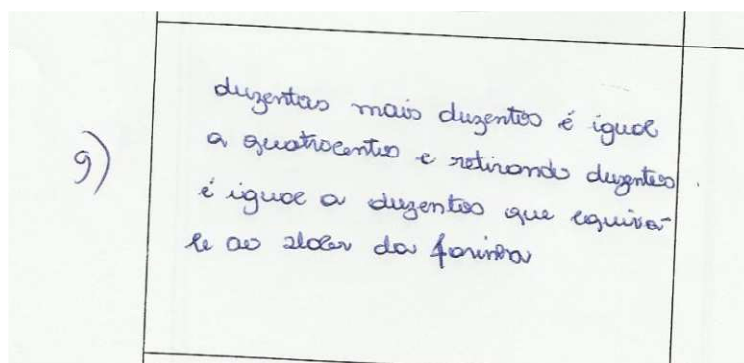 duzentos mais duzentos é igual
9) a quatrocentos e retirando duzentos
é igual a duzentos que equiva-
le ao valor da farinha